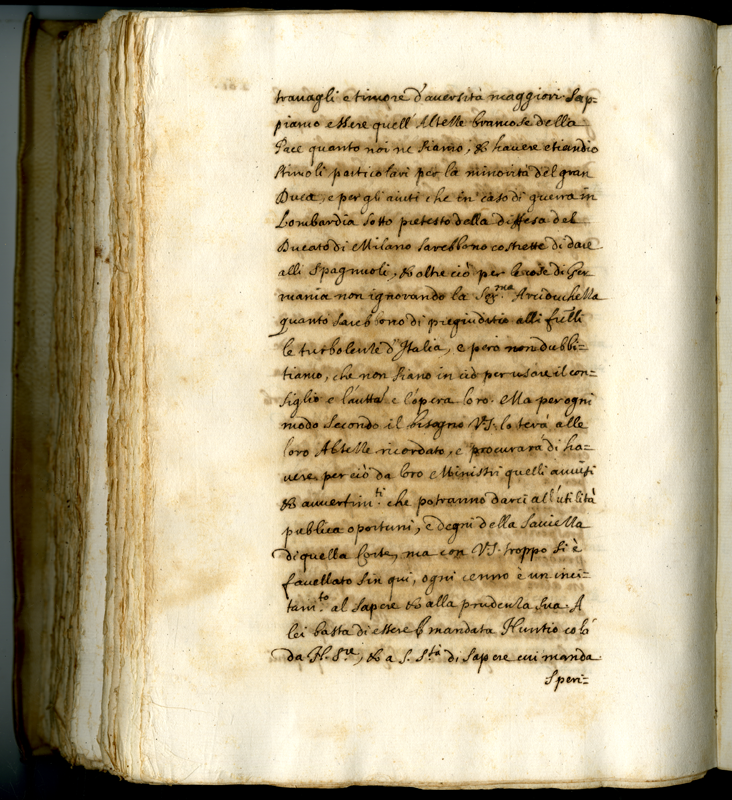 trauagli e timore d'auersità maggiori. Sap=
piamo essere quell' Altezze bramose della
Pace quanto noi ne siamo, & hauere etiandio
stimoli particolari per la minorità del gran
Duca, e per gli aiuti che in caso di guerra in
Lombardia sotto pretesto della diffesa del
Ducato di Milano sarebbono costrette di dare
alli Spagnuoli, & oltre ciò per le cose di Ger
mania non ignorando la Ser.ma Arciduchessa
quanto sarebbono di pregiuditio alli frelli
le turbolenze d'Italia, e però non dubbi=
tiamo, che non siano in ciò per usare il con=
siglio e l'autta e l'opera loro. Ma per ogni
modo secondo il bisogno V.S. lo terà alle
loro Altezze ricordato, e procurarà di ha=
uere per ciò da loro e Ministri quelli auuisi
& auuertim.ti che potranno darci all'utilità
publica oportuni, e degni della sauiezza
di quella Corte, ma con V.S. troppo si è
fauellato sin qui, ogni cenno è un inci=
tam.to al sapere & alla prudenza sua. A
lei basta di essere mandata Nuntio colà
da N. S.re, & a S. S.tà di sapere cui manda.
Speri=